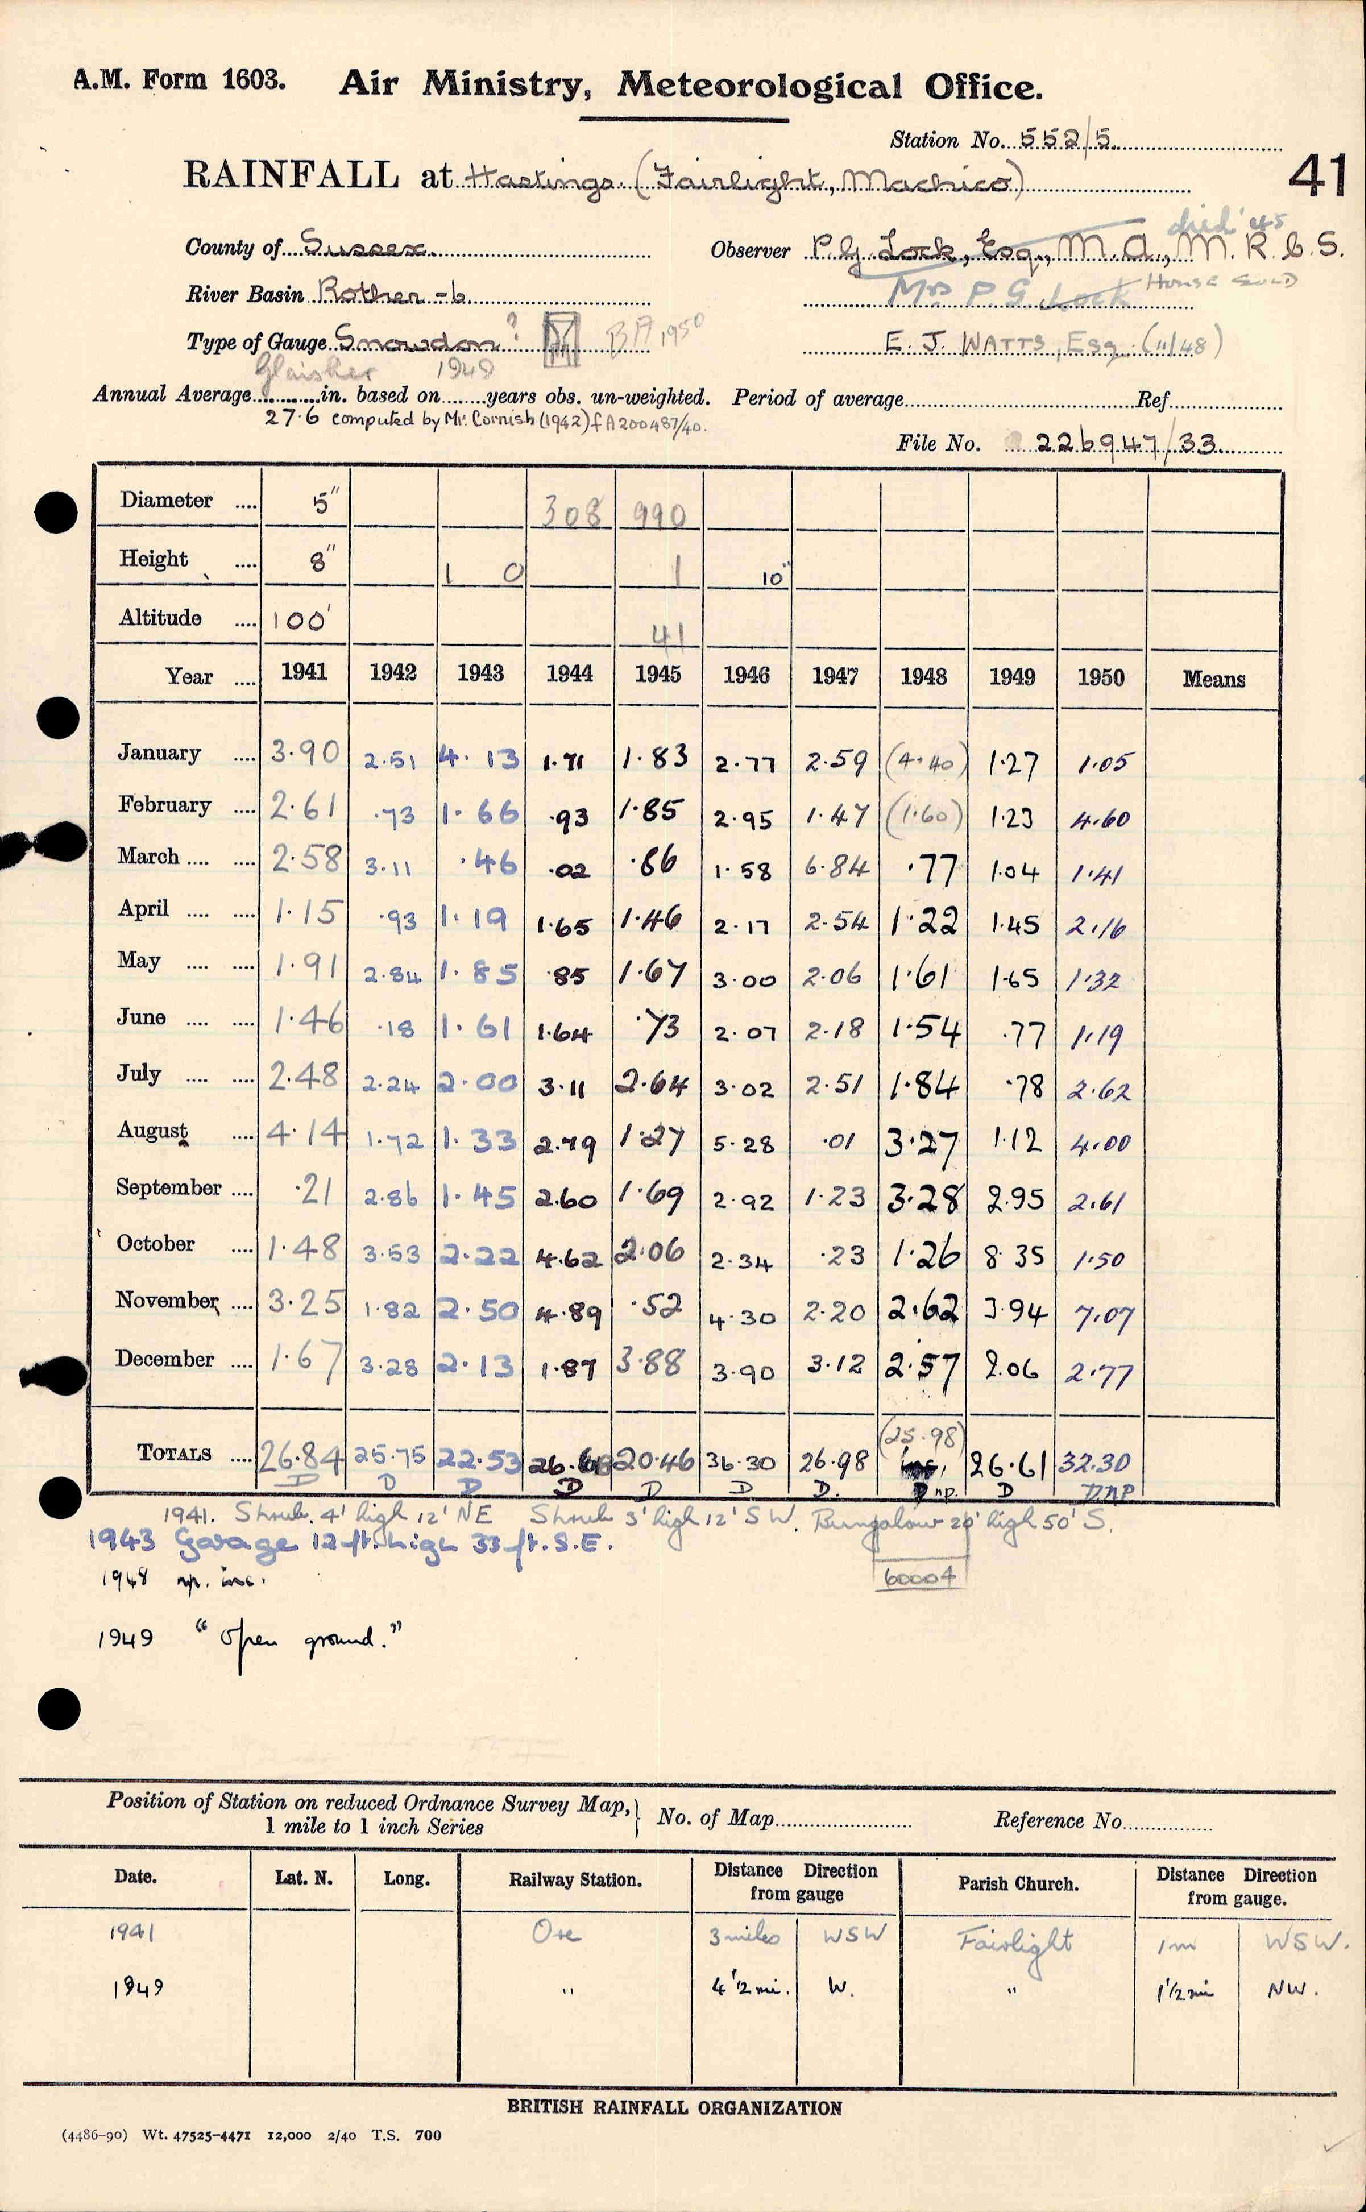 A.M. Form 1603. Air Ministry, Meteorological Office.
Station No. 552/5
RAINFALL at Hastings (Fairlight, Machico) 41
died '45
County of Sussex Observer P.G. Lock, Esq., M.A., M.R.C.S.
River Basin Rother - 6 Mrs P G Lock HOUSE SOLD
Type of Gauge Snowdon ? BA 1950 E. J. WATTS, Esq. (11/48)
Glaisher 1948
Annual Average in. based on years obs. un-weighted. Period of average Ref.
27.6 computed by Mr. Cornish (1942) f A200487/40.
File No. 226947/33
Diameter .... 5" 308 990
Height .... 8" 1 0 1 10"
Altitude .... 100' 41
Year .... 1941 1942 1943 1944 1945 1946 1947 1948 1949 1950 Means
January .... 3.90 2.51 4.13 1.71 1.83 2.77 2.59 (4.40) 1.27 1.05
February .... 2.61 .73 1.66 .93 1.85 2.95 1.47 (1.60) 1.23 4.60
March .... .... 2.58 3.11 .46 .02 .86 1.58 6.84 .77 1.04 1.41
April .... .... 1.15 .93 1.19 1.65 1.46 2.17 2.54 1.22 1.45 2.16
May .... .... 1.91 2.84 1.85 .85 1.67 3.00 2.06 1.61 1.65 1.32
June .... .... 1.46 .18 1.61 1.64 .73 2.07 2.18 1.54 .77 1.19
July .... .... 2.48 2.24 2.00 3.11 2.64 3.02 2.51 1.84 .78 2.62
August .... 4.14 1.72 1.33 2.79 1.27 5.28 .01 3.27 1.12 4.00
September .... .21 2.86 1.45 2.60 1.69 2.92 1.23 3.28 2.95 2.61
October .... 1.48 3.53 2.22 4.62 2.06 2.34 .23 1.26 8.35 1.50
November .... 3.25 1.82 2.50 4.89 .52 4.30 2.20 2.62 3.94 7.07
December .... 1.67 3.28 2.13 1.87 3.88 3.90 3.12 2.57 2.06 2.77
(25.98)
TOTALS .... 26.84 25.75 22.53 26.68 20.46 36.30 26.98 Inc. 26.61 32.30
D D D D D D D. D np. D DNP
1941. Shrub. 4' high 12' NE Shrub 3' high 12' SW. Bungalow 20' high 50' S.
1943 Garage 12 ft. high 33 ft. S.E.
1948 np. inc. 60004
1949 "Open ground."
Position of Station on reduced Ordnance Survey Map, 1 mile to 1 inch Series No. of Map Reference No.
Date. Lat. N. Long. Railway Station. Distance Direction from gauge Parish Church. Distance Direction from gauge.
1941 Ore 3 miles WSW Fairlight 1 mi WSW.
1949 " 4 1/2 mi. W. " 1 1/2 mi NW.
BRITISH RAINFALL ORGANIZATION
(4486-90) Wt. 47525-4471 12,000 2/40 T.S. 700